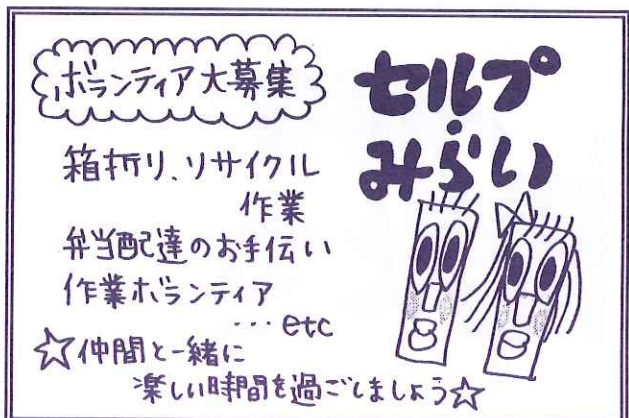 ボランティア大募集
セルプ・
みらい
箱折り、リサイクル
作業
弁当配達のお手伝い
作業ボランティア
…etc
☆仲間と一緒に
楽しい時間を過ごしましょう☆